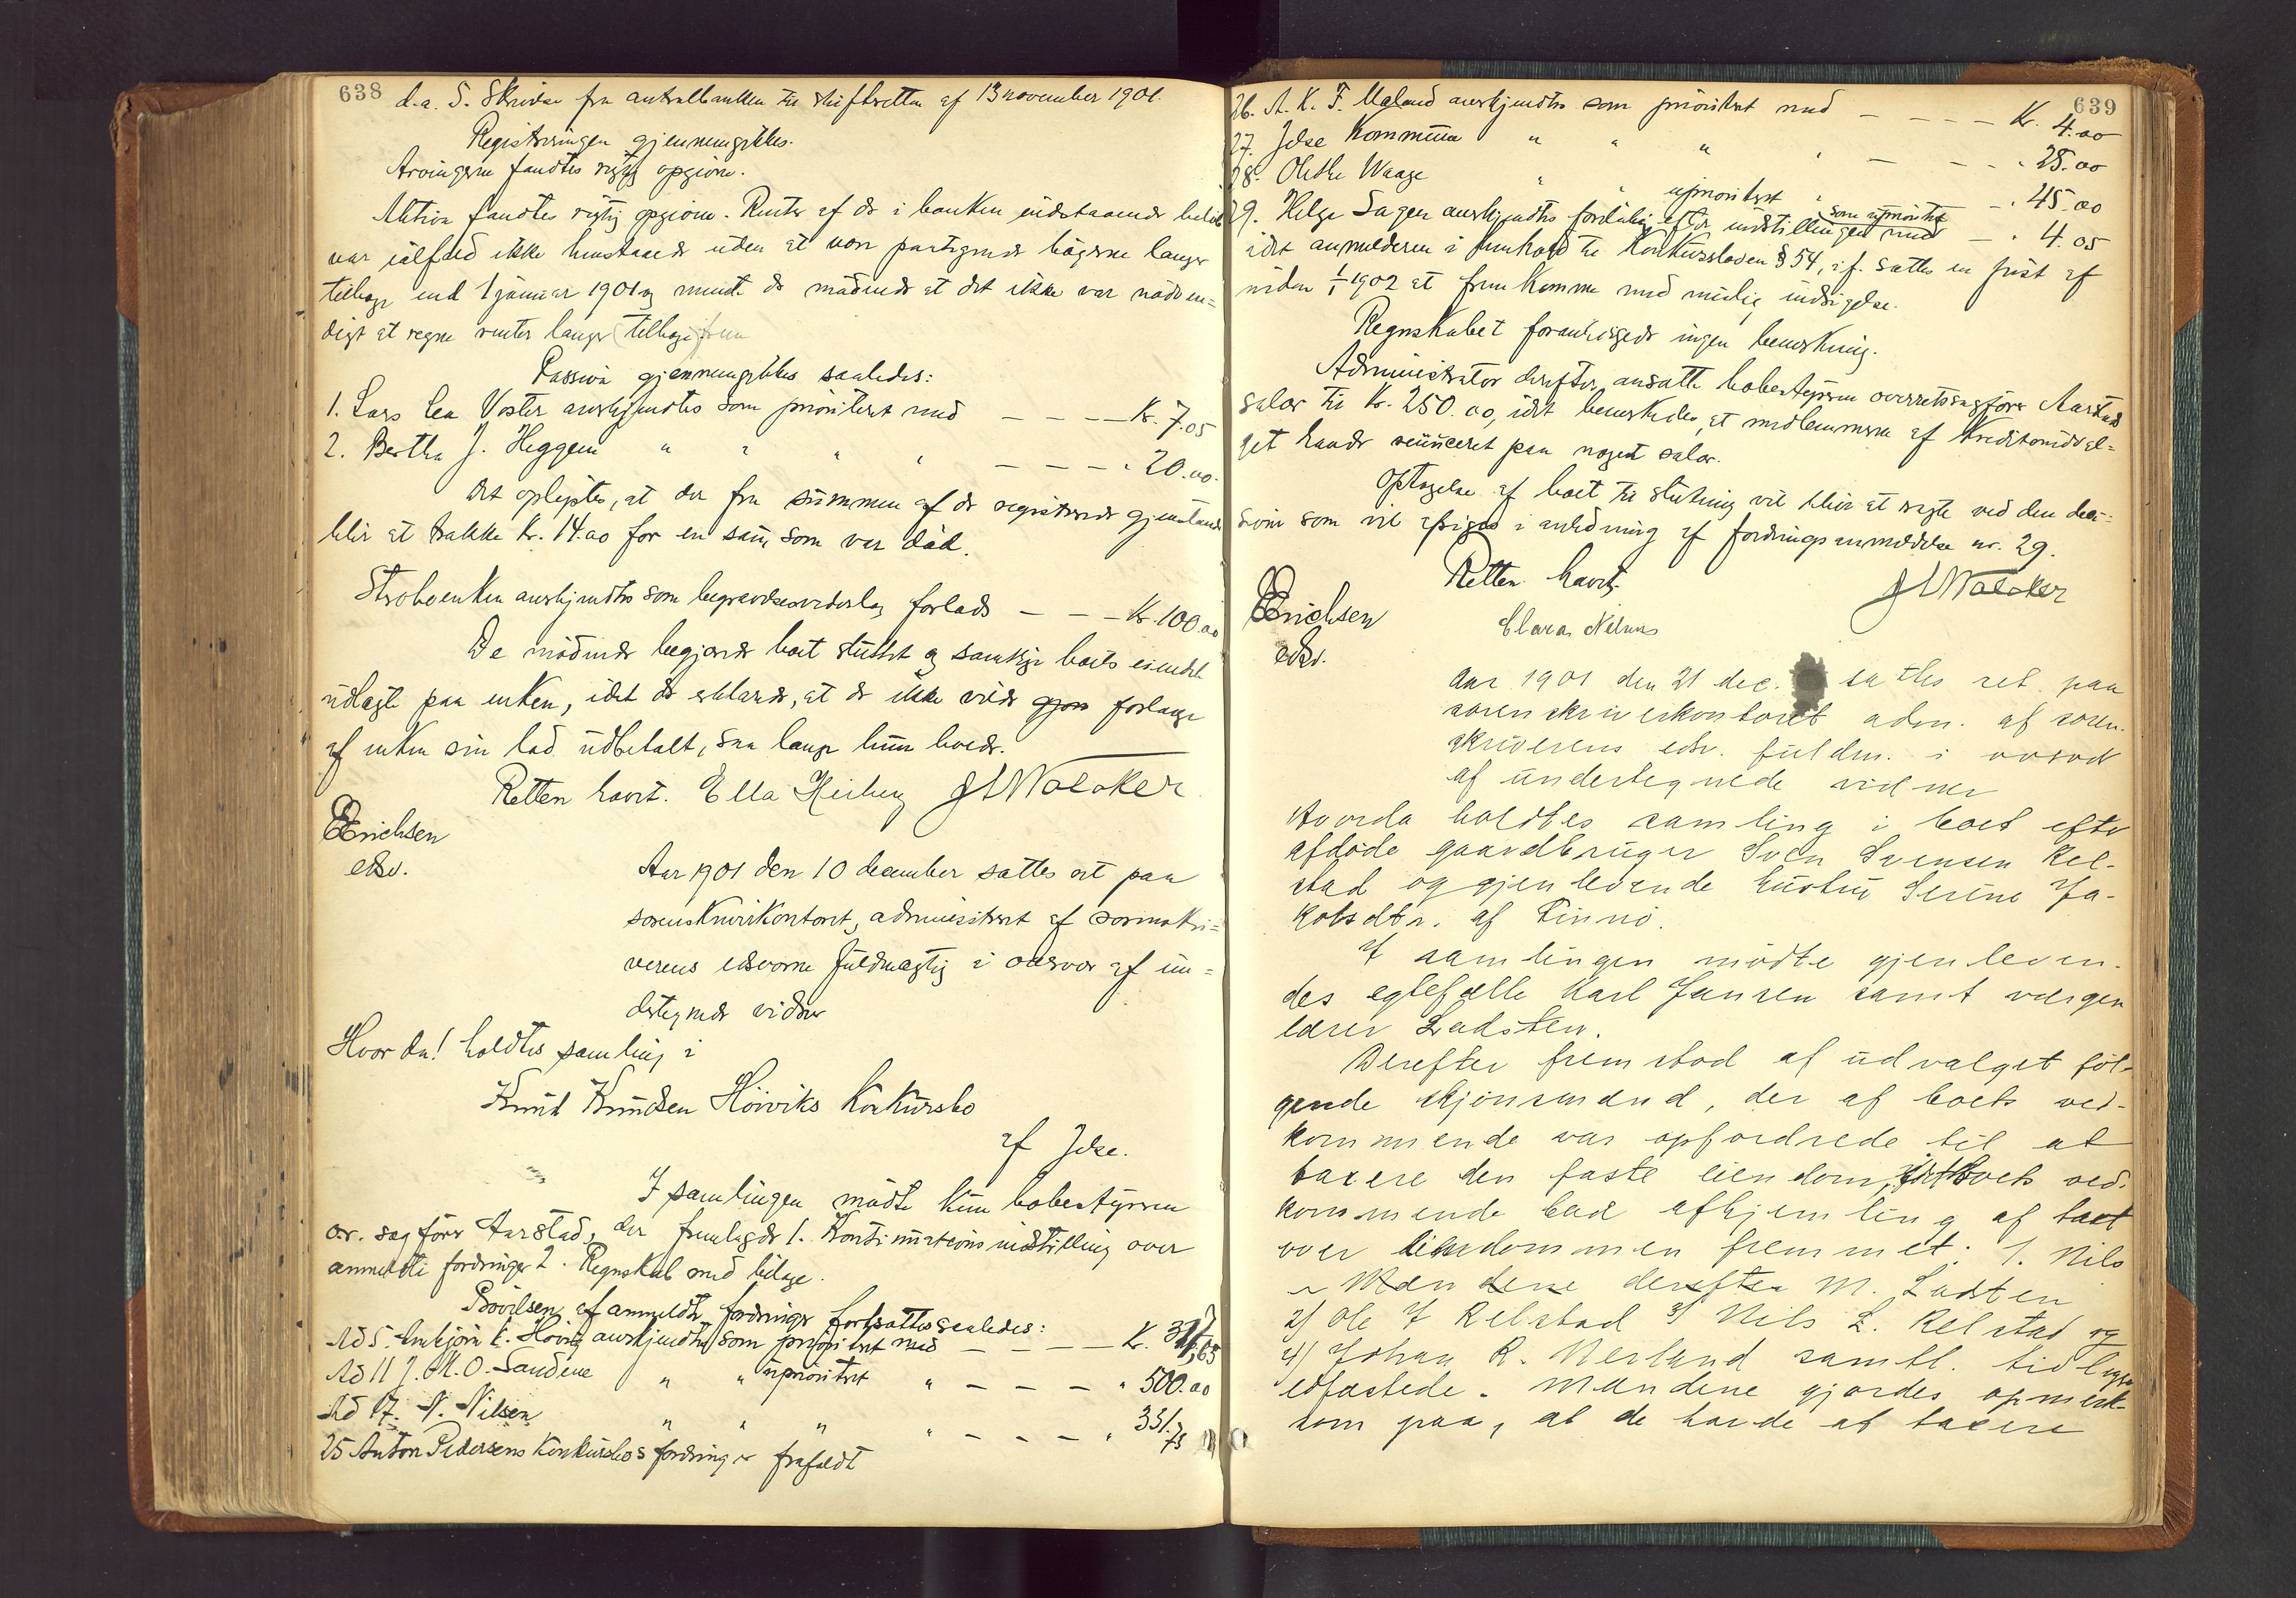 638
d.a. 5. Skrivelse fra centralbanken til skifteretten af 13 november 1901.
Registreringen gjennemgikkes.
Arvingerne fandtes rigtig opgivne.
Aktiva fandtes rigtig opgivne. Renter af de i banken indestaaende beløb
var ialfald ikke henstaaende uden at være paategnede bøgerne længer
tilbage end 1 januar 1901 og mente de mødende at det ikke var nødven=
digt at regne renter længer (tilbage)
Passiva gjennemgikkes saaledes:
1. Lars Lea Voster anerkjendtes som prioriteret med — — — Kr. 7.05
2. Bertha J. Heggem " " " " — — — " 20.00.
Det oplystes, at der fra summen af de registrerede gjenstande
blir at trække Kr. 14.00 for en sau, som var død.
Strøboenken anerkjendtes som begravelsesvederlag forlods — — — Kr. 100.00
De mødende begjærede boet sluttet og samtlige boets eiendele
udlagte paa enken, idet de erklærede, at de ikke vilde gjøre forlange
af enken sin lod udbetalt, saa længe hun levede.
Retten hævet. Ella Heiberg JLWalcker
EErichsen
edsv.
Aar 1901 den 10 december sattes ret paa
sorenskriverkontoret, administreret af sorenskri=
verens edsvorne fuldmægtig i overvær af un=
dertegnede vidner
Hvor da! holdtes samling i
Knut Knudsen Høiviks Konkursbo
af Jelse.
I samlingen mødte kun bobestyreren
o.r. sagfører Aarstad, der fremlagde 1. Kontinuationsindstilling over
anmeldte fordringer 2. Regnskab med bilage.
Prøvelsen af anmeldte fordringer fortsattes saaledes:
Ad 5. K. Høivig anerkjendtes som prioriteret med — — — — Kr.
Ad 11 J. M. O. Sandene " " uprioritert " — — — " 500.00
Ad 17. N. Nilsen " " " " — — — " 331.75
25 Anton Pedersens Konkursbos fordring er frafaldt
639
26. A. K. F. Maland anerkjendtes som prioritert med — — — — Kr. 4.00
27. Jelse Kommune " " " " — — — " 28.00
28. Olethe Waage " " uprioritert " — " 45.00
29. Helge Sagen anerkjendtes foreløbig efter indstillingen som uprioritet med — " 4.05
idet anmelderen i henhold til Konkursloven § 54, jf. sattes en frist af
inden 1/1 1902 at fremkomme med mulig indsigelse.
Regnskabet foranledigede ingen bemerkning.
Administrator derefter ansatte bobestyreren overretssagfører Aarstads
salær til Kr. 250.00, idet bemerkedes, at medlemmerne af Kreditorudval=
get havde renunceret paa noget salær.
Optagelse af boet til slutning vil blive at rette ved den deci=
sion som vil afsiges i anledning af fordringsanmeldelse nr. 29.
Retten hævet. JLWalcker
EErichsen Clara Nilsens
edsv.
Aar 1901 den 21 dec. sattes ret paa
sorenskriverkontoret adm. af soren-
skriverens edsv. fuldm. i overvær
af undertegnede vidner
Hvorda holdtes samling i boet efter
afdøde gaardbruger Sven Svensen Rel-
stad og gjenlevende hustru Serine Ja-
kobsdtr. af Finnø.
I samlingen mødte gjenleven-
des egtefælle Karl Jansen samt værgen
lærer Ladsten.
Derefter fremstod af udvalget føl-
gende skjønsmænd, der af boets ved-
kommende var opfordrede til at
taxere den faste eiendom, idet boets ved-
kommende bad afhjemling af taxt
over eiendommen fremmet: 1. Nils
Mændene derefter M. Ladsten
2) Ole J Relstad 3) Nils L. Relstad og
4) Johan R. Nerland samtl. tidligere
edfæstede. Mændene gjordes opmerk-
som paa, at de havde at taxere